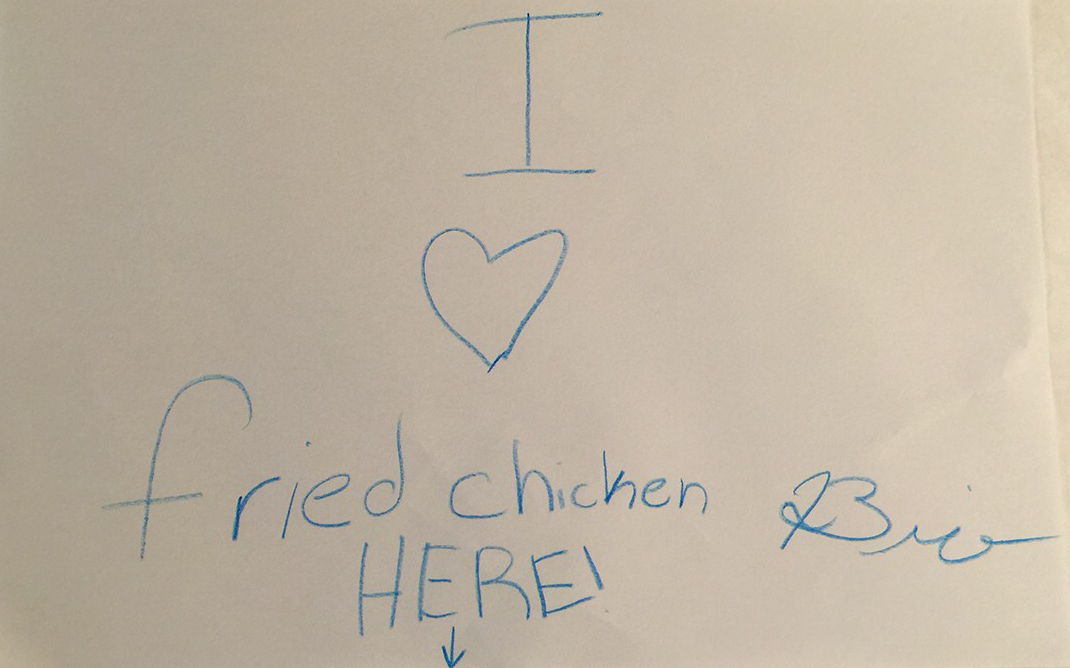 I
♡
fried chicken
HERE!
↓